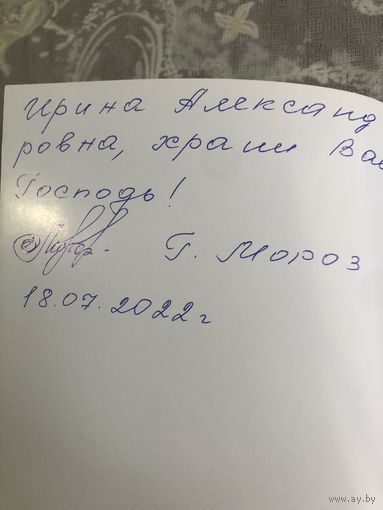 Ирина Александ
ровна, храни Вас
Господь!
Г. Мороз
18.07.2022 г
www.ay.by